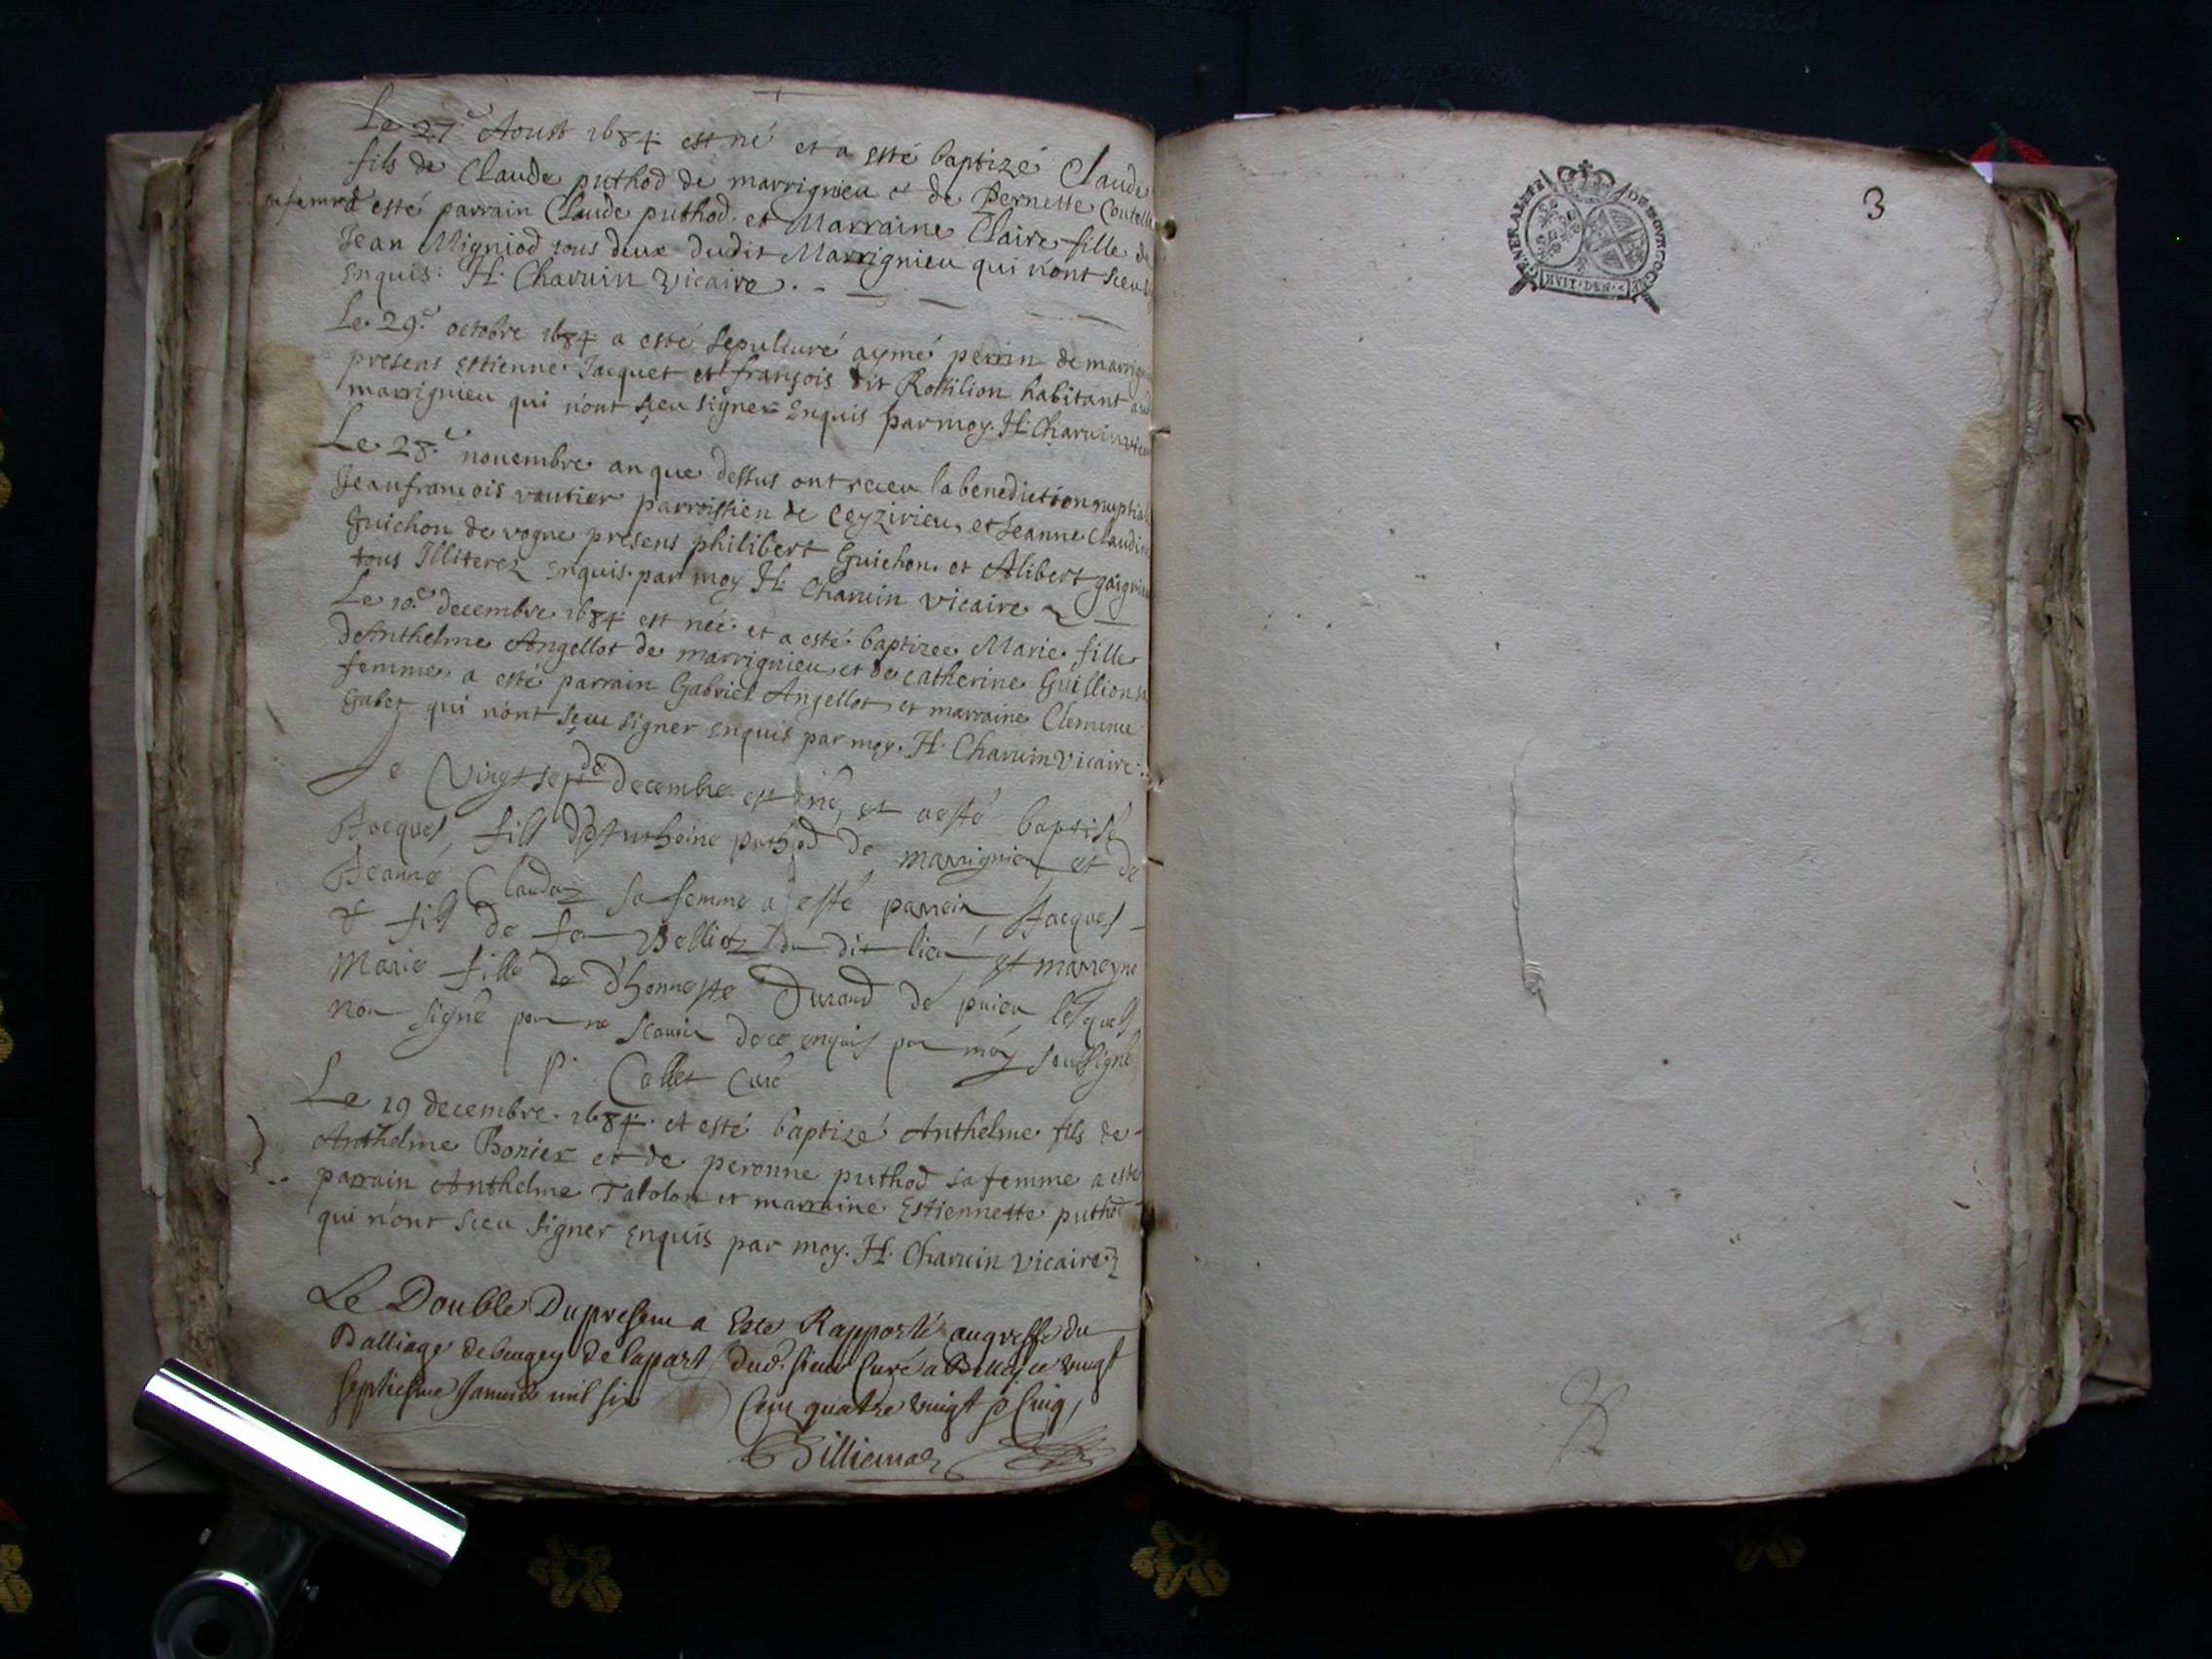 Le 27e Aoust 1684 est né et a esté baptizé Claude
fils de Claude puthod de marrignieu et de Pernette Coutell
sa femme a esté parrain Claude puthod et Marraine Claire fille de
Jean Migniod tous deux dudit Marrignieu qui n'ont sceu
Enquis: H. Charuin Vicaire.
Le 29e octobre 1684 a esté sepulturé aymé perrin de marrign
presens Estienne Jacquet et françois dit Rossilion habitant aud
marrignieu qui n'ont sçeu signer Enquis par moy. H. Charuin vicai
Le 28e nouembre an que dessus ont receu la benediction nuptial
Jeanfrancois vautier parroissien de Ceyzirieu, et Jeanne Claudin
Guichon de vogne presens philibert Guichon et Alibert
tous Illiterez enquis par moy H. Charuin vicaire
Le 10e decembre 1684 est née et a esté baptizée Marie fille
d'Anthelme Angellot de marrignieu et de catherine Guillion sa
femme, a esté parrain Gabriel Angellot et marraine Clemence
Gabet qui n'ont sçeu signer enquis par moy. H. Charuin Vicaire.
Le Vingt sept de decembre est né, et a esté baptisé
Jacques, fils d'Anthoine puthod de marrignieu et de
Jeanne Claudaz sa femme a esté parrein, Jacques
fils de feu Belliot du dit lieu, et marreyne
Marie fille de d'honneste Durand de puieu lesquels
non signé pour ne scauoir de ce enquis par moy soussigné
P. Collet Curé
Le 19 decembre 1684 et esté baptizé Anthelme fils de
Anthelme Bonier et de peronne puthod sa femme a esté
parrain Anthelme Tabolon et marraine Estiennette puthod
qui n'ont sceu signer enquis par moy. H. Charuin vicaire.
Le Double Du present a Esté Rapporté au greffe du
Balliage de beugey de la part dud. sieur Curé a Belley ce vingt
septiesme Januier mil six Cens quatre vingt & Cinq,
Billiemaz
3
GENERALITE DE BOVRGOGNE
HVIT DEN.